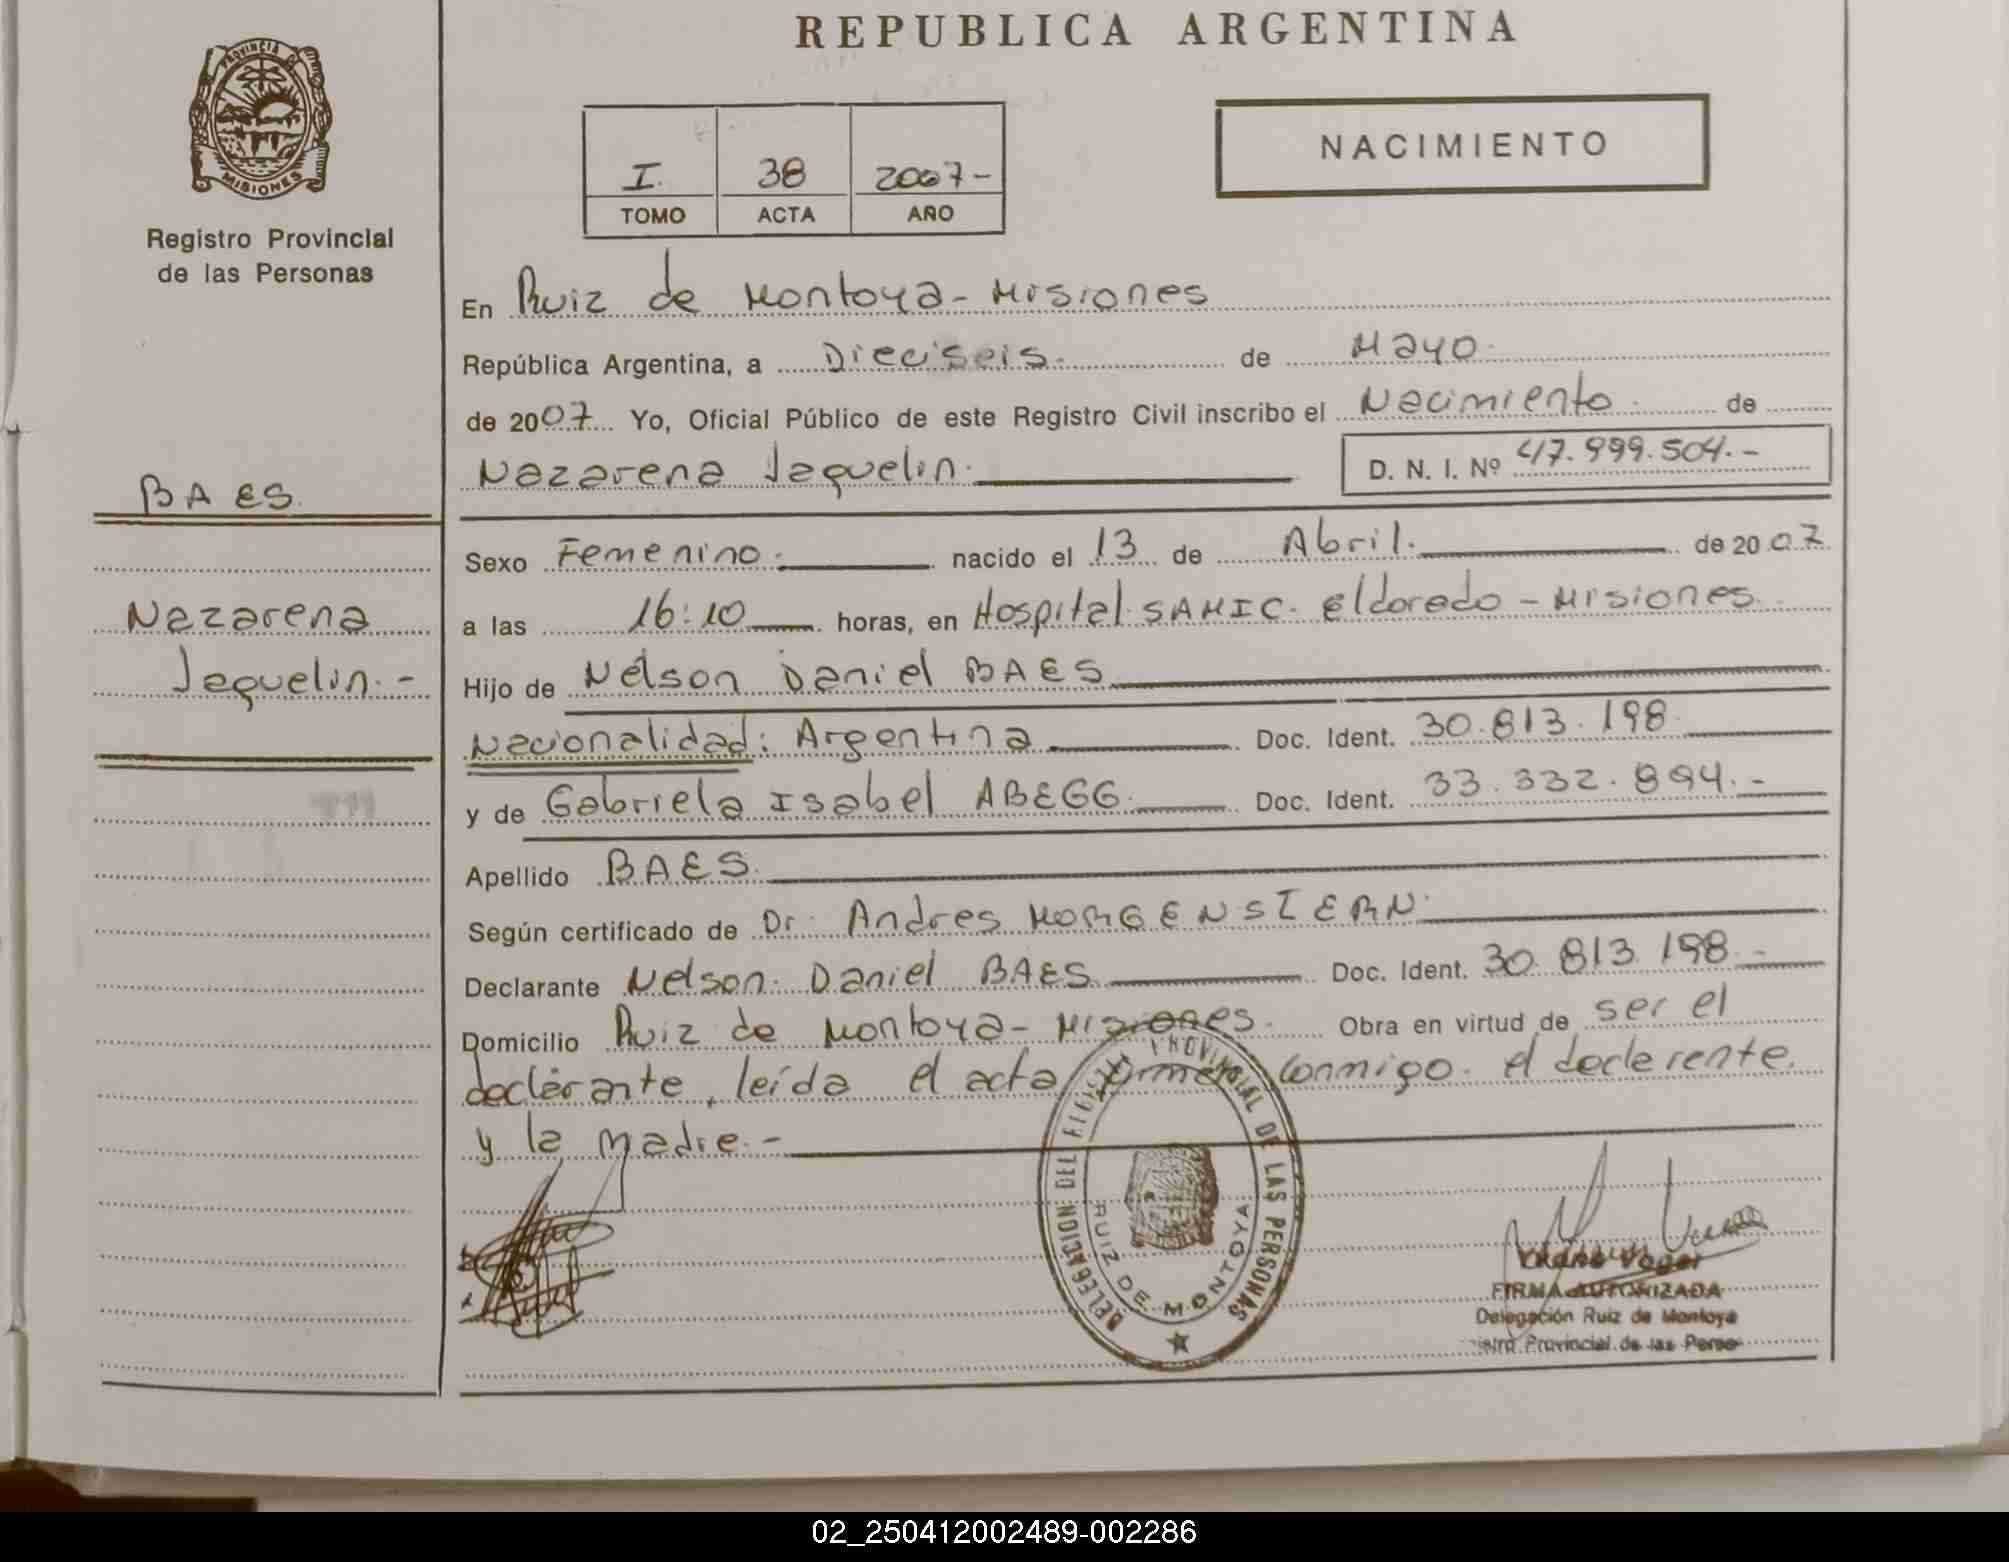 REPUBLICA ARGENTINA
PROVINCIA DE
MISIONES
Registro Provincial
de las Personas
I. 38 2007-
TOMO ACTA AÑO
NACIMIENTO
En Ruiz de Montoya - Misiones
República Argentina, a Dieciseis de Mayo
de 2007 Yo, Oficial Público de este Registro Civil inscribo el Nacimiento de
Nazarena Jaquelin. D. N. I. Nº 47.999.504.-
BAES
Sexo Femenino. nacido el 13 de Abril. de 2007
Nazarena
a las 16:10 horas, en Hospital SAMIC. Eldorado - Misiones.
Jaquelin.-
Hijo de Nelson Daniel BAES
Nacionalidad: Argentina Doc. Ident. 30.813.198
y de Gabriela Isabel ABEGG. Doc. Ident. 33.332.894.-
Apellido BAES.
Según certificado de Dr. Andres MORGENSTERN.
Declarante Nelson Daniel BAES Doc. Ident. 30.813.198.-
Domicilio Ruiz de Montoya - Misiones. Obra en virtud de ser el
declarante, leída el acta firman conmigo el declarante.
y la madre.-
DELEGACION DEL REGISTRO PROVINCIAL DE LAS PERSONAS
RUIZ DE MONTOYA
FIRMA AUTORIZADA
Delegación Ruiz de Montoya
Provincial de las
02_250412002489-002286